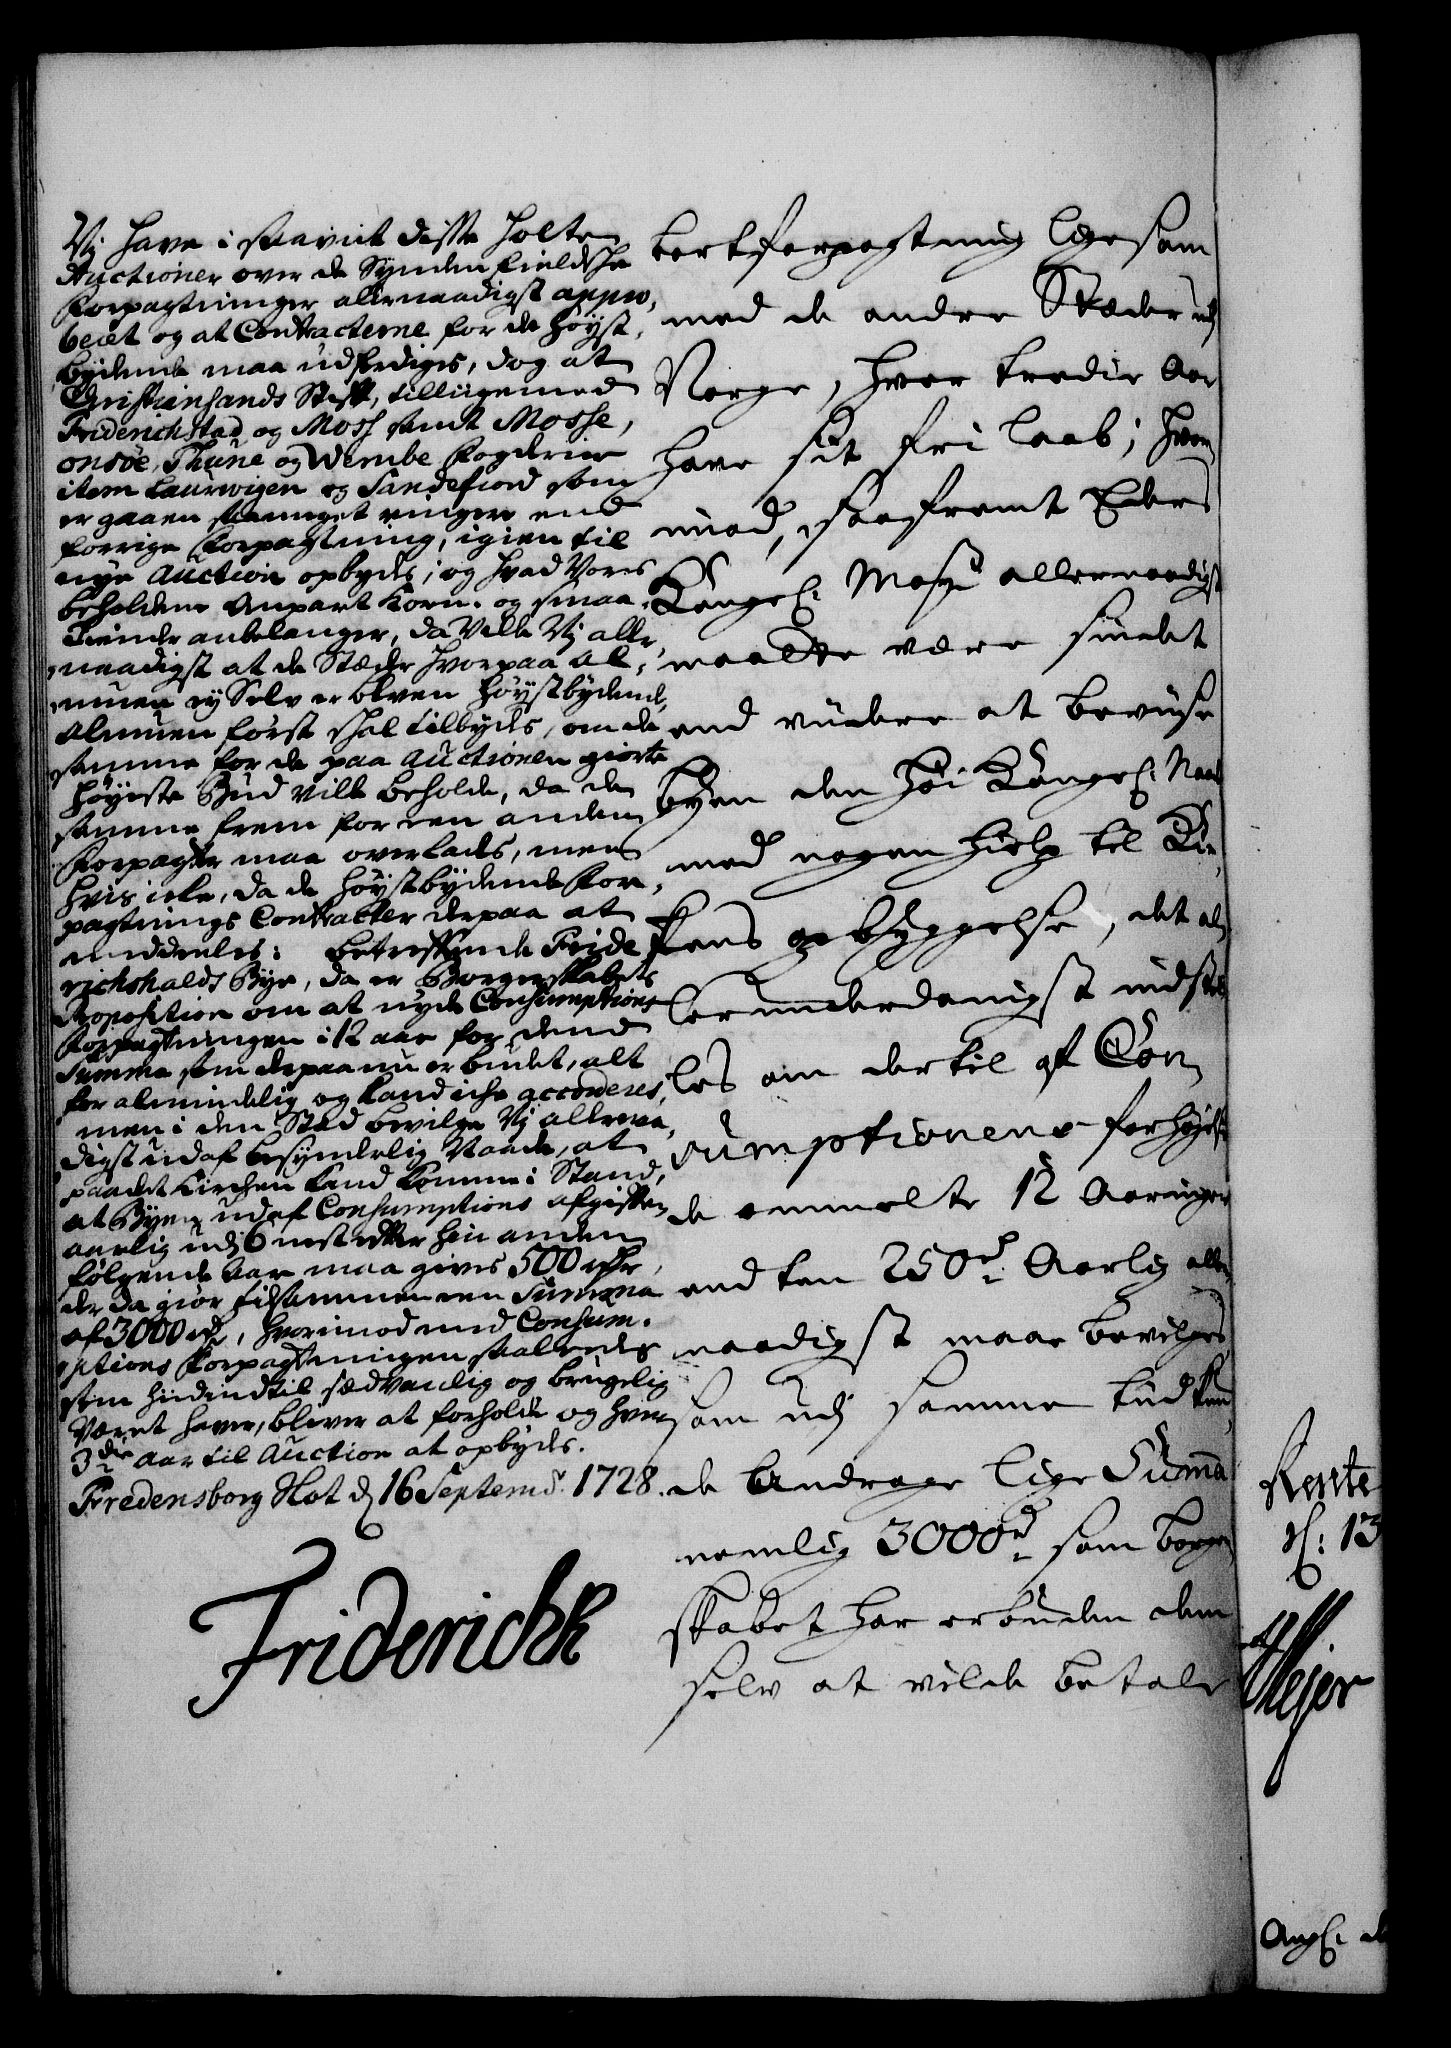 Vj have i saavit disse holte
Auctioner over de Syndenfieldske
Forpagtninger allernaadigst appro,
beret og at Contracterne for de høyst,
bydende maa udferdiges, dog at
Christiansands Stift, tilligemed
Friderichstad og Moss samt Mosse,
onsøe, Thune og Wembe fogderier
item Laurwigen og Sandefiord som
er gaaen saa meget ringere end
forrige forpagtning, igien til
nye Auction opbydes; og hvad Vores
beholdene Anpart Korn- og smaa,
Tiender anbelanger, da Ville Vj aller,
naadigst at de Stæder hvorpaa Al,
muen ej Selv er bleven høystbydende,
Almuen først skal tilbydes, om de
samme for de paa Auctionen giorte
høyeste Bud ville beholde, da de
samme frem for een anden
Forpagter maa overlades, men
hvis icke, da de høystbydende For,
pagtnings Contracter derpaa at
meddeeles: Betreffende Fride
richshalds Bye, da er Borgerskabets
Proposition om at nyde Consumptions
Forpagtningen i 12 aar for dend
Summa som derpaa nu er budet, alt
for almindelig og kand icke accorderes,
men i den Sted bevilge Vj allernaa,
digst udaf besynderlig Naade, at
paa det Kirchen kand komme i Stand,
at Byen udaf Consumptions afgiften
aarlig udj 6 nest efter hin anden
følgende Aar maa gives 500 rdr,
der da giør tilsammen een Summa
af 3000 rdr, hvorimod med Consum-
ptions Forpagtningen saaledes
som hidindtil sædvanlig og brugelig
Været haver, bliver at forholde og hver
3die aar til Auction at opbydes.
Fredensborg Slot d 16 Septemb. 1728.
Friderich R
bortforpagtning lige som
med de andre Stæder udj
Norge, hver tredie Aar
have sit frie Laab; hvor
imod, saafremt Eders
Kongel: Mayt allernaadigst
maatte være sindet
end videre at beviise
byen den høi Kongel: Naade
med nogen hielp til Kir,
kens opbyggelse, det al,
lerunderdanigst indstil
les om dertil af Con,
sumptionens forhøyelse
de ommelte 12 Aaringer
endten 250 rd Aarlig aller,
naadigst maae bevilges,
som udj samme tiid kun,
de Andrage lige Summa
nemlig 3000 rd som borger
skabet har erbuden dem
selv at vilde betale
Rente
d: 13
Mejer
Angl: de